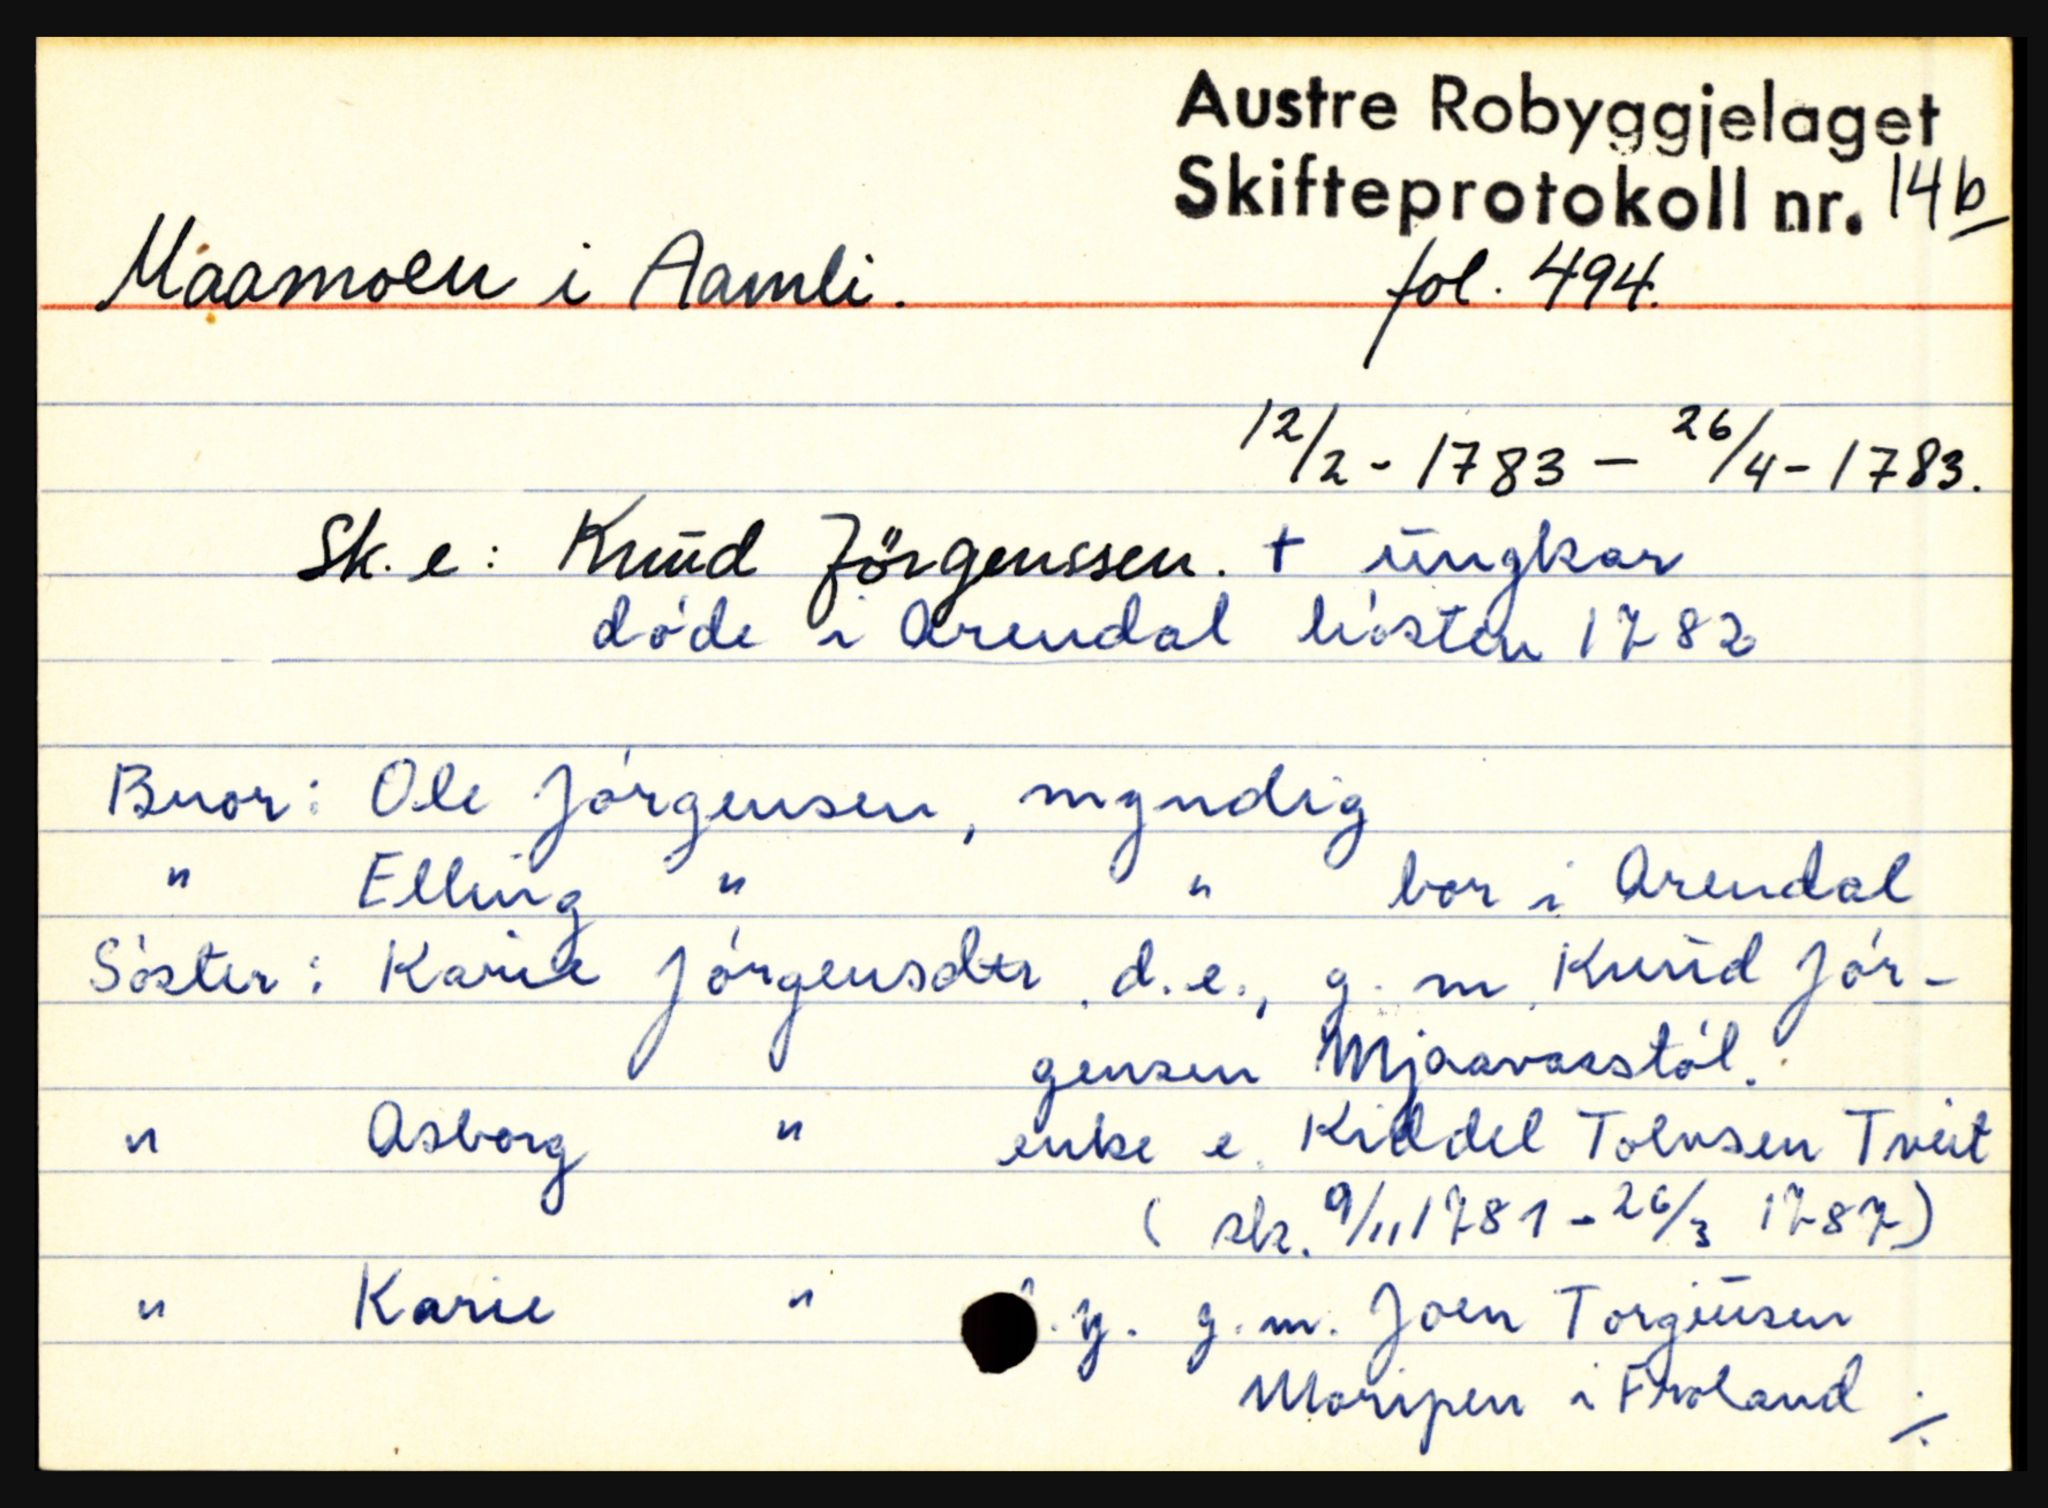 Austre Robyggjelaget
Skifteprotokoll nr. 14b
Maamoen i Aamli. fol. 494.
12/2 - 1783 – 26/4 - 1783.
Sk. e: Knud Jörgenssen. + ungkar
döde i Arendal hösten 1782
Bror: Ole Jörgensen, myndig
" Elling " " bor i Arendal
Söster: Karie Jörgensdtr d.e., g. m. Knud Jör-
gensen Mjaavasstöl.
" Asborg " enke e. Kiddel Tolvsen Tveit
( sk. 9/11 1781 - 26/3 1787)
" Karie " . y. g. m. Joen Torgiusen
Moripen i Froland ./.